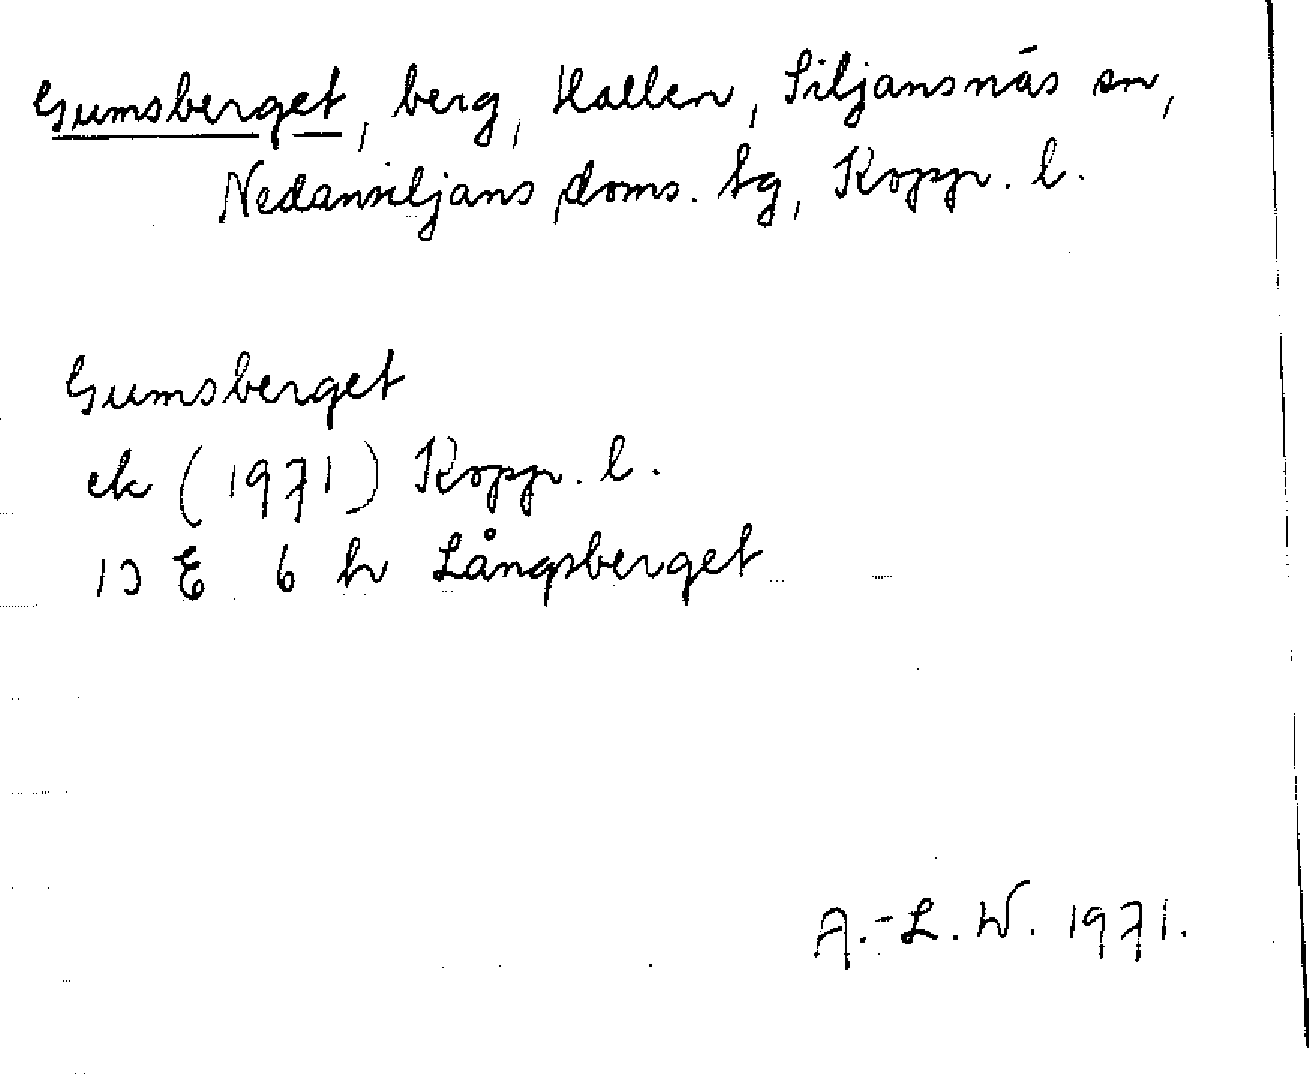 Gumsberget, berg, Hallen, Siljansnäs sn,
Nedansiljans doms. tg, Koppr. l.
Gumsberget
ek (1971) Koppr. l.
13 E 6 h Långsberget
A.-L. W. 1971.